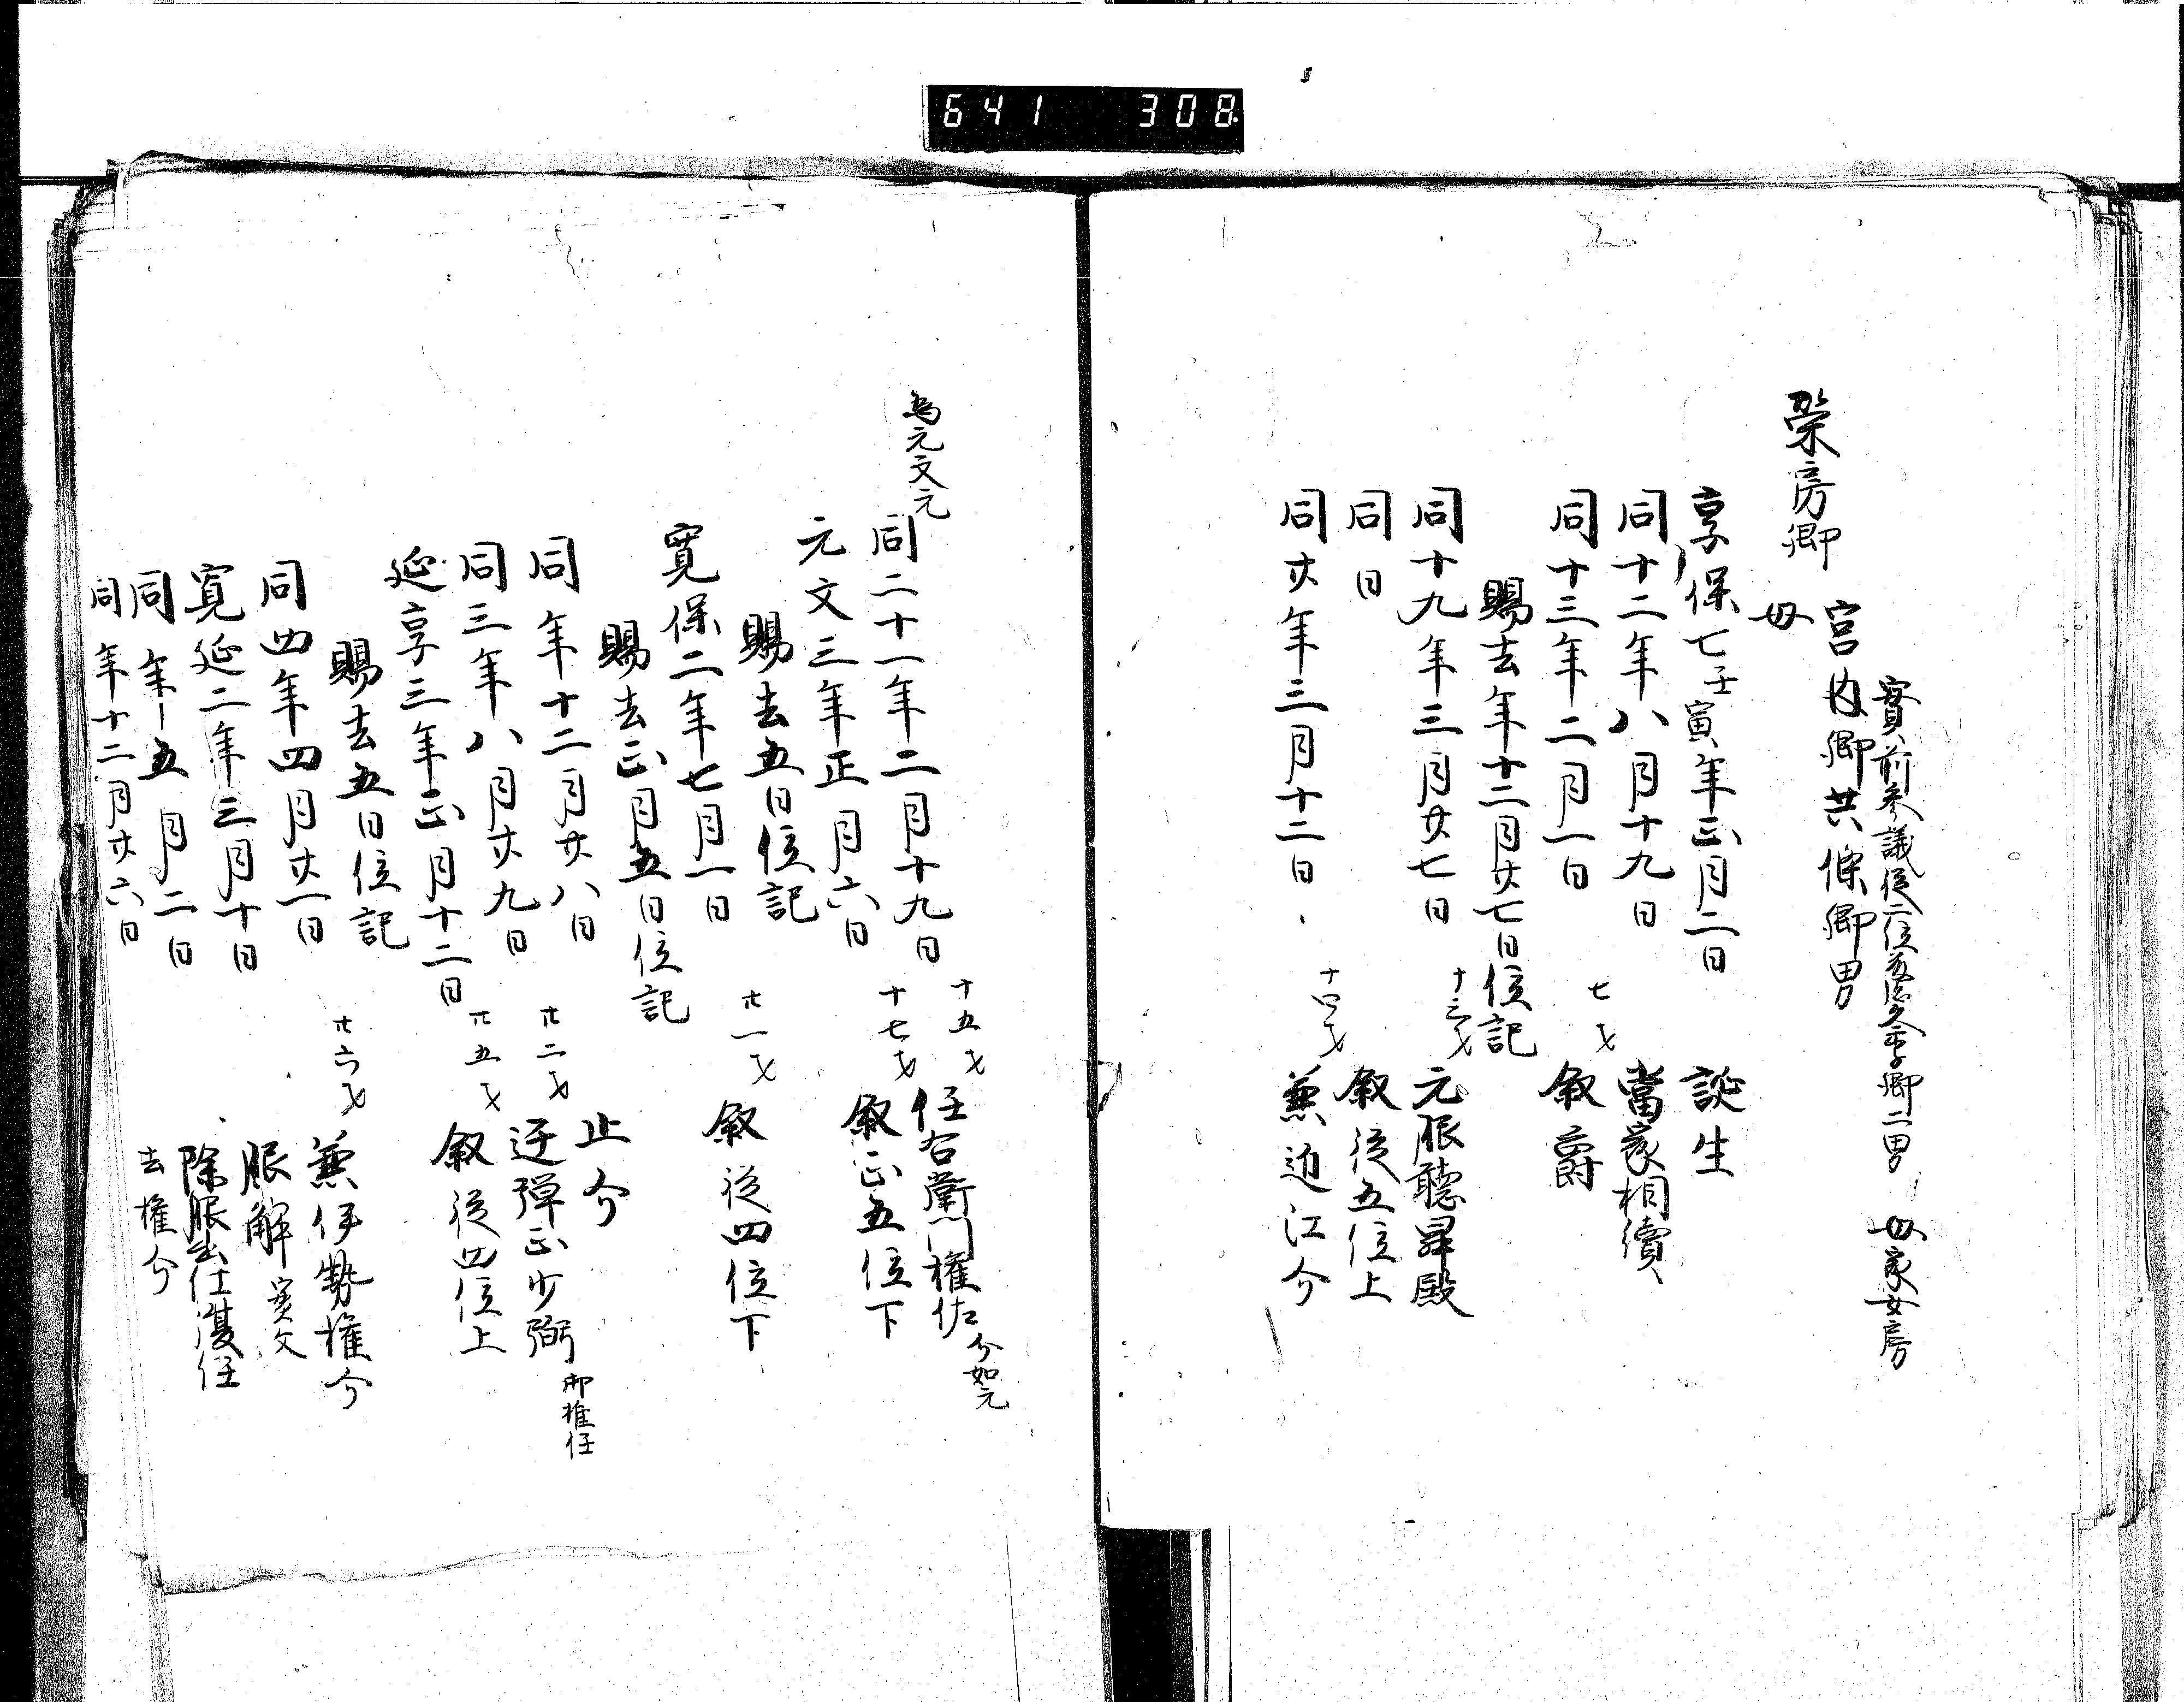 641 308
實前参議従二位久季卿二男 母家女房
宮内卿共條卿男
榮房卿
母
享保七壬寅年正月二日 誕生
同十二年八月十九日 當家相續
同十三年二月一日 七才 叙爵
賜去年十二月廿七日位記
同十九年三月廿七日 十三才 元服聴昇殿
同日 叙従五位上
同廿年三月十二日 十四才 兼近江介
為元文元
同二十一年二月十九日 十五才 任右衛門権佐 介如元
元文三年正月六日 十七才 叙正五位下
賜去五日位記
寛保二年七月一日 廿一才 叙従四位下
賜去正月五日位記
同年十二月廿八日 止介
同三年八月廿九日 廿二才 迁弾正少弼 即推任
延享三年正月十二日 廿五才 叙従四位上
賜去五日位記
同四年四月廿一日 廿六才 兼伊勢権介
寛延二年三月十日 服解 實父
同年五月二日 除服出仕復任
同年十二月廿六日 去権介